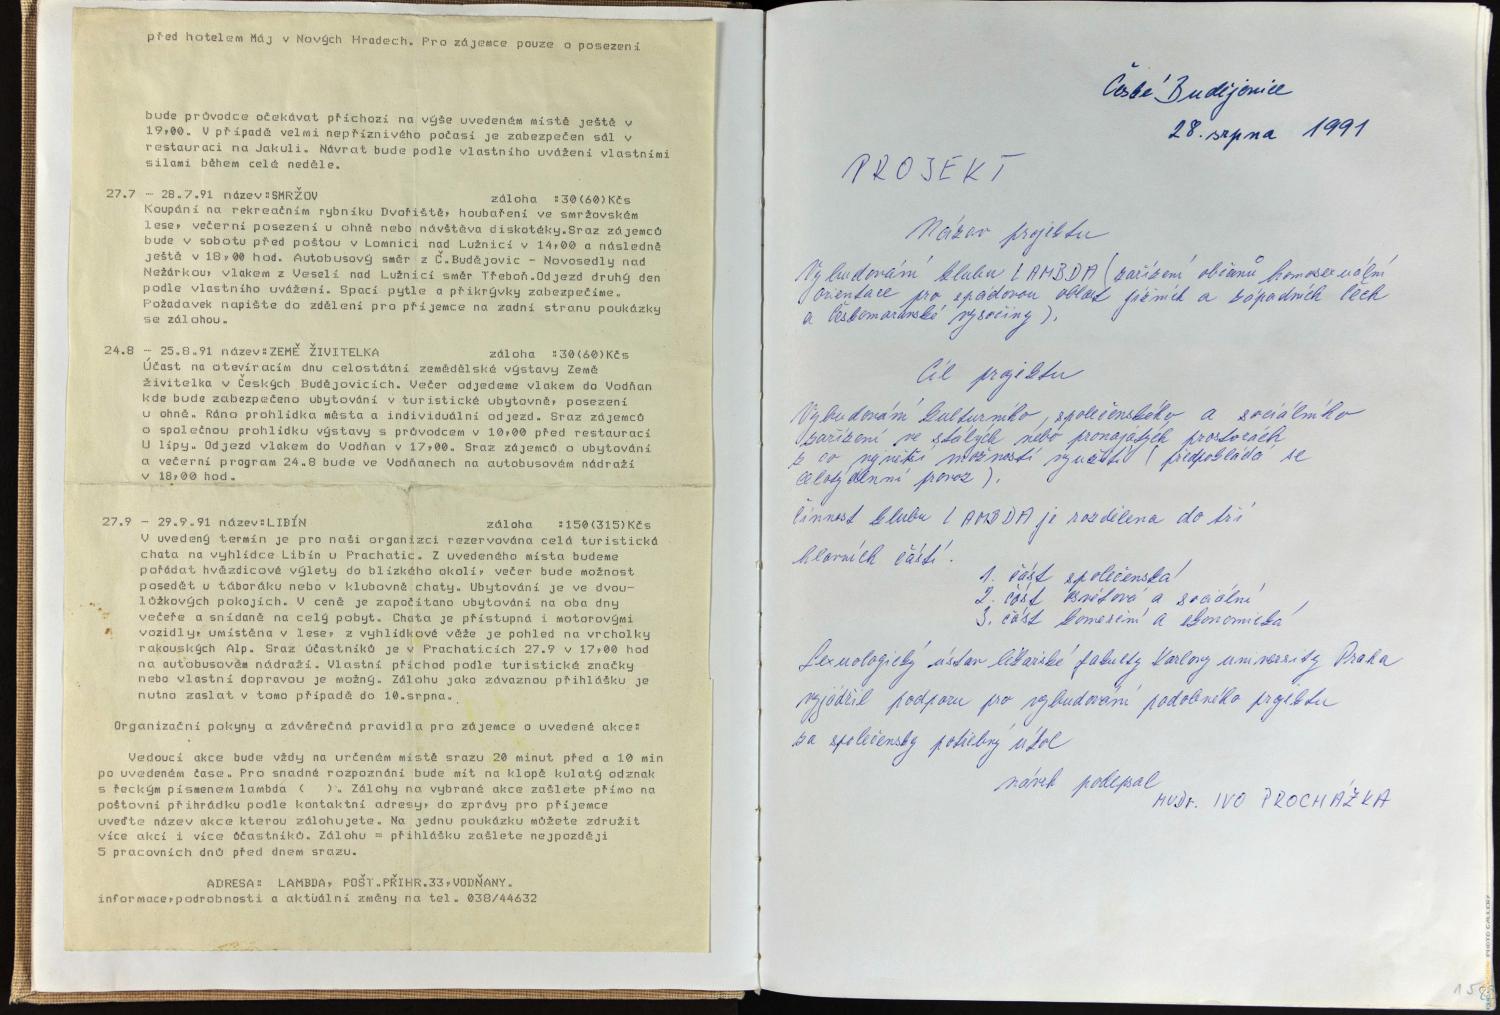 před hotelem Máj v Nových Hradech. Pro zájemce pouze o posezení
bude průvodce očekávat příchozí na výše uvedeném místě ještě v
19,00. V případě velmi nepříznivého počasí je zabezpečen sál v
restauraci na Jakuli. Návrat bude podle vlastního uvážení vlastními
silami během celé neděle.
27.7 - 28.7.91 název:SMRŽOV záloha :30(60)Kčs
Koupání na rekreačním rybníku Dvořiště, houbaření ve smržovském
lese, večerní posezení u ohně nebo návštěva diskotéky.Sraz zájemců
bude v sobotu před poštou v Lomnici nad Lužnicí v 14,00 a následně
ještě v 18,00 hod. Autobusový směr z Č.Budějovic - Novosedly nad
Nežárkou, vlakem z Veselí nad Lužnicí směr Třeboň.Odjezd druhý den
podle vlastního uvážení. Spací pytle a přikrývky zabezpečíme.
Požadavek napište do zdělení pro příjemce na zadní stranu poukázky
se zálohou.
24.8 - 25.8.91 název:ZEMĚ ŽIVITELKA záloha :30(60)Kčs
Účast na otevíracím dnu celostátní zemědělské výstavy Země
živitelka v Českých Budějovicích. Večer odjedeme vlakem do Vodňan
kde bude zabezpečeno ubytování v turistické ubytovně, posezení
u ohně. Ráno prohlídka města a individuální odjezd. Sraz zájemců
o společnou prohlídku výstavy s průvodcem v 10,00 před restaurací
U lípy. Odjezd vlakem do Vodňan v 17,00. Sraz zájemců o ubytování
a večerní program 24.8 bude ve Vodňanech na autobusovém nádraží
v 18,00 hod.
27.9 - 29.9.91 název:LIBÍN záloha :150(315)Kčs
V uvedený termín je pro naši organizci rezervována celá turistická
chata na vyhlídce Libín u Prachatic. Z uvedeného místa budeme
pořádat hvězdicové výlety do blízkého okolí, večer bude možnost
posedět u táboráku nebo v klubovně chaty. Ubytování je ve dvou-
lůžkových pokojích. V ceně je započítano ubytování na oba dny
večeře a snídaně na celý pobyt. Chata je přístupná i motorovými
vozidly, umístěna v lese, z vyhlídkové věže je pohled na vrcholky
rakouských Alp. Sraz účastníků je v Prachaticích 27.9 v 17,00 hod
na autobusovém nádraží. Vlastní příchod podle turistické značky
nebo vlastní dopravou je možný. Zálohu jako závaznou přihlášku je
nutno zaslat v tomo případě do 10.srpna.
Organizační pokyny a závěrečná pravidla pro zájemce o uvedené akce:
Vedoucí akce bude vždy na určeném místě srazu 20 minut před a 10 min
po uvedeném čase. Pro snadné rozpoznání bude mít na klopě kulatý odznak
s řeckým písmenem lambda ( ). Zálohy na vybrané akce zašlete přímo na
poštovní přihrádku podle kontaktní adresy, do zprávy pro příjemce
uveďte název akce kterou zálohujete. Na jednu poukázku můžete združit
více akcí i více účastníků. Zálohu = přihlášku zašlete nejpozději
5 pracovních dnů před dnem srazu.
ADRESA: LAMBDA, POŠT.PŘIHR.33,VODŇANY.
informace,podrobnosti a aktuální změny na tel. 038/44632
České Budějovice
28. srpna 1991
PROJEKT
Název projektu
Vybudování klubu LAMBDA (zařízení občanů homosexuální
orientace pro spádovou oblast jižních a západních Čech
a Českomoravské vysočiny).
Cíl projektu
Vybudování kulturního, společenského a sociálního
zařízení ve stálých nebo pronajatých prostorách
s co největší možností využití (předpokládá se
celotýdenní provoz).
Činnost klubu LAMBDA je rozdělena do tří
hlavních částí.
1. část společenská
2. část osvětová a sociální
3. část komerční a ekonomická
Sexuologický ústav lékařské fakulty Karlovy university Praha
vyjádřil podporu pro vybudování podobného projektu
za společensky potřebný účel
návrh podepsal
MUDr. IVO PROCHÁZKA
PHOTO GALLERY